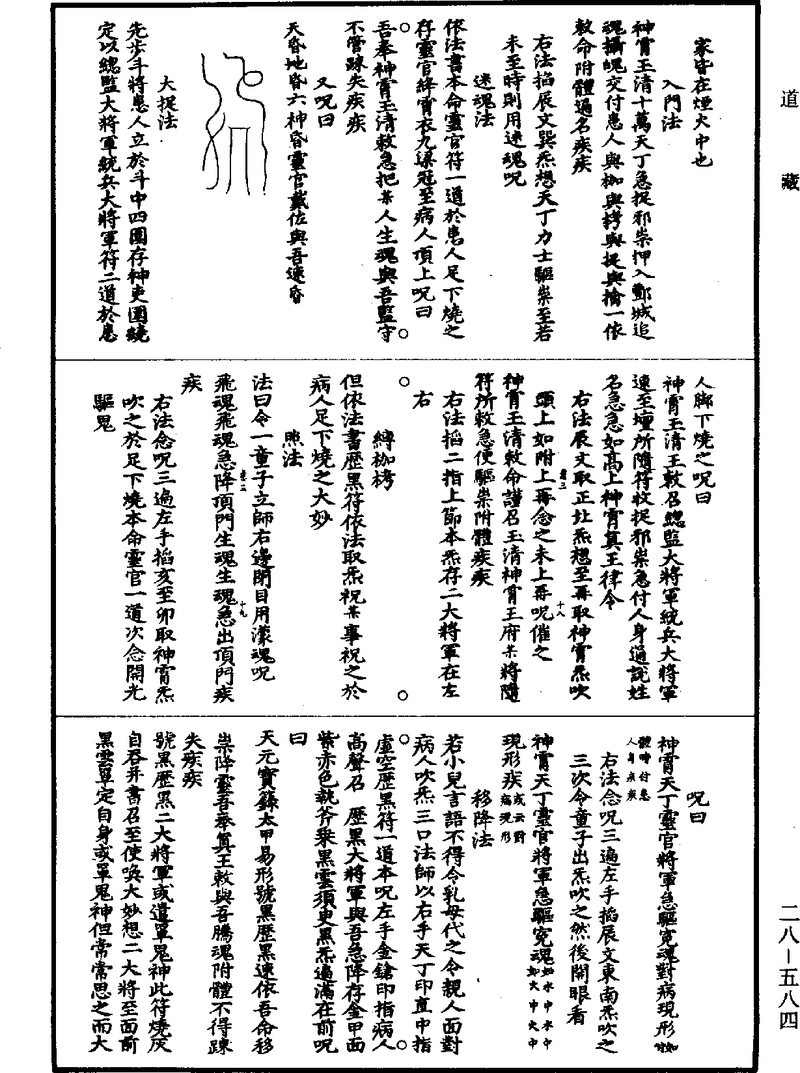 道藏
家皆在煙火中也
入門法
神霄玉清十萬天丁急捉邪祟押入酆城追
魂攝魄交付患人與枷與拷與捉與擒一依
敕命附體通名疾疾
右法掐辰文巽炁想天丁力士驅祟至若
未至時則用迷魂呪
迷魂法
依法書本命靈官符一道於患人足下燒之
存靈官絳寶衣九梁冠至病人頂上呪曰
吾奉神霄玉清敕急把某人生魂與吾監守
不管踈失疾疾
又呪曰
天昏地昏六神昏靈官戴位與吾速昏
大捉法
先步斗將患人立於斗中四圍存神吏圍繞
定以總監大將軍統兵大將軍符二道於患
人脚下燒之呪曰
神霄玉清王敕召總監大將軍統兵大將軍
速至壇所隨符收捉邪祟急付人身通說姓
名急急如高上神霄真王律令
右法辰文取正北炁想至再取神霄炁吹
頭上如附上再念之未上再呪催之
神霄玉清敕命謹召玉清神霄王府某將隨
符所敕急使驅祟附體疾疾
右法掐二指上節本炁存二大將軍在左
右
縛枷栲
但依法書歷黑符依法取炁祝某事祝之於
病人足下燒之大妙
照法
法曰令一童子立師右邊閉目用濛魂呪
飛魂飛魂急降頂門生魂生魂急出頂門疾
疾
右法念呪三遍左手掐亥至卯取神霄炁
吹之於足下燒本命靈官一道次念開光
驅鬼
呪曰
神霄天丁靈官將軍急驅寃魂對病現形
右法念呪三遍左手掐辰文東南炁吹之
三次令童子出炁吹之然後開眼看
神霄天丁靈官將軍急驅寃魂如水中水中如火中火中
現形疾或云對病現形
移降法
若小兒言語不得令乳母代之令親人面對
病人吹炁三口法師以右手天丁印直中指
虛空歷黑符一道本呪左手金鎗印指病人
高聲召歷黑大將軍與吾急降存金甲面
紫赤色執斧乘黑雲須臾黑炁遍滿在前呪
曰
天元寶籙太甲易形號黑歷黑速依吾命移
祟降靈吾奉真王敕與吾騰魂附體不得踈
失疾疾
號黑歷黑二大將軍或遣單鬼神此符燒灰
自吞并書召至使喚大妙想二大將至面前
黑雲罩定自身或罩鬼神但常常思之而大
二八－五八四